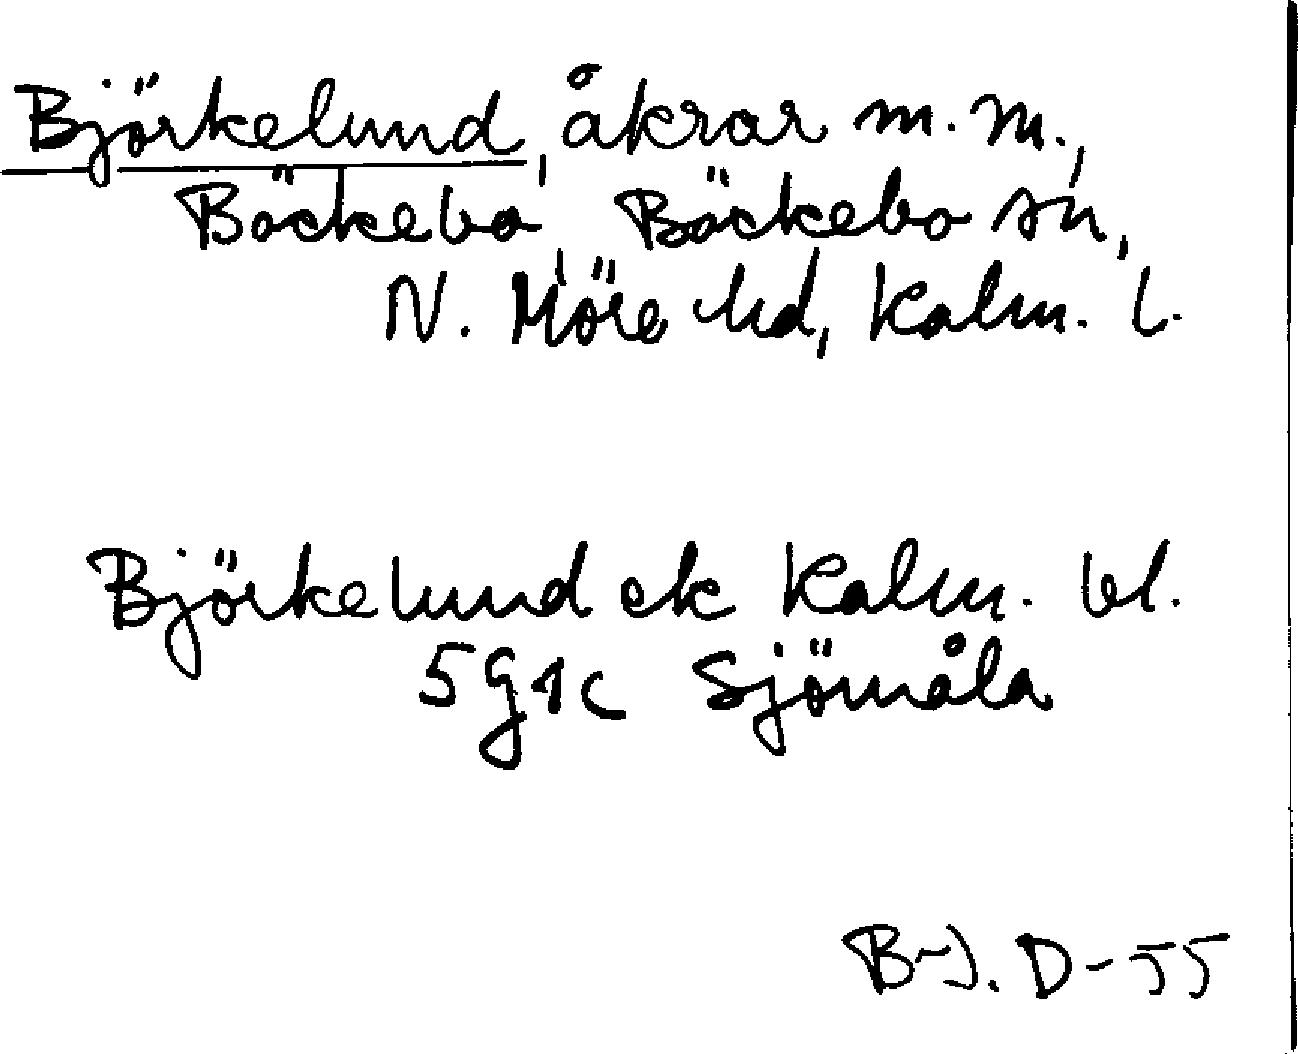 Björkelund, åkrar m.m.,
Böckebo, Bäckebo sn,
N. Möre hd, Kalm. l.
Björkelund ek Kalm. bl.
5g4c Sjömåla
B-J. D-55